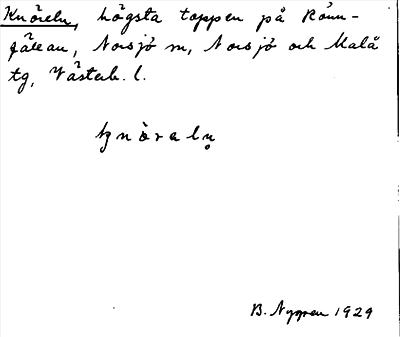 Knöreln, högsta toppen på Rönn-
gälean, Norsjö sn, Norsjö och Malå
tg, Västerb. l.
knòraln̥
B. Nygren 1929